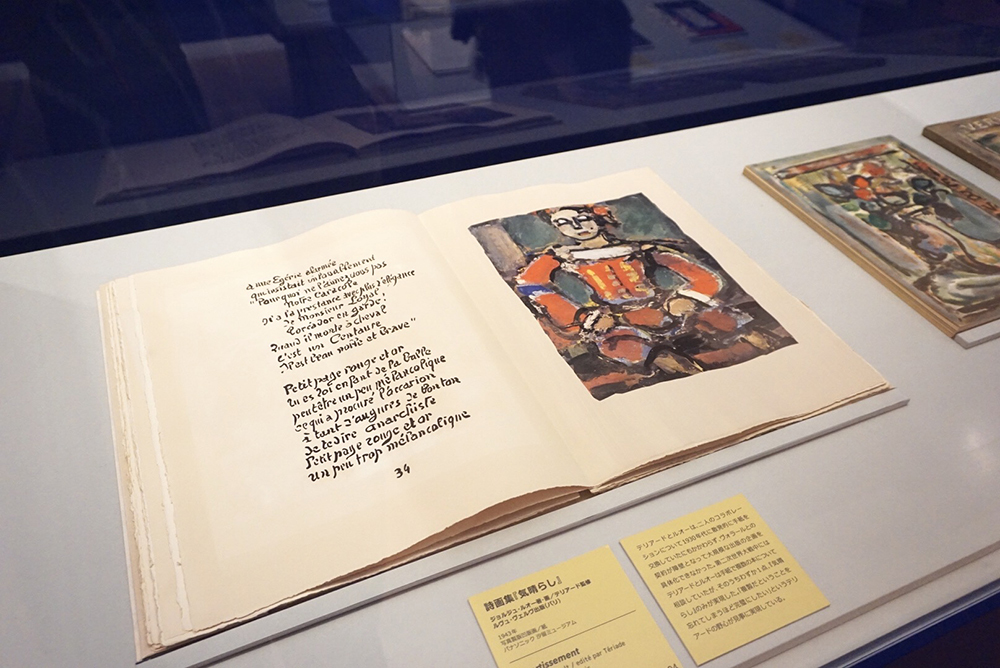 à une Egérie alarmée
qui insistait inlassablement
"Pourquoi ne l'aimez vous pas
Notre Caracole
Il a la prestance avec plus d'élégance
de Monsieur Loyal!
Toréador en garde!
Quand il monte à cheval
c'est un Centaure
Il est beau noble et brave"
Petit page rouge et or
tu es Roi enfant de la balle
peut être un peu mélancolique
ce qui a procuré l'occasion
à tant d'augures de bon ton
de te dire anarchiste
Petit page rouge et or
un peu trop mélancolique
34
詩画集『気晴らし』
ジョルジュ・ルオー著・画／テリアード監修
ルヴュ・ヴェルヴ出版(パリ)
1943年
パナソニック 汐留ミュージアム
tissement
/ edité par Tériade
テリアードとルオーは、二人のコラボレー
ションについて1930年代に散発的に手紙を
交換していたにもかかわらず、ヴォラールとの
契約が障壁となって大規模な出版の企画を
具体化できなかった。第二次世界大戦中には
テリアードとルオーは手紙で複数の本について
相談していたが、そのうちわずか1点、『気晴
らし』のみが実現した。「複製だということを
忘れてしまうほど完璧にしたい」というテリ
アードの野心が見事に実現している。